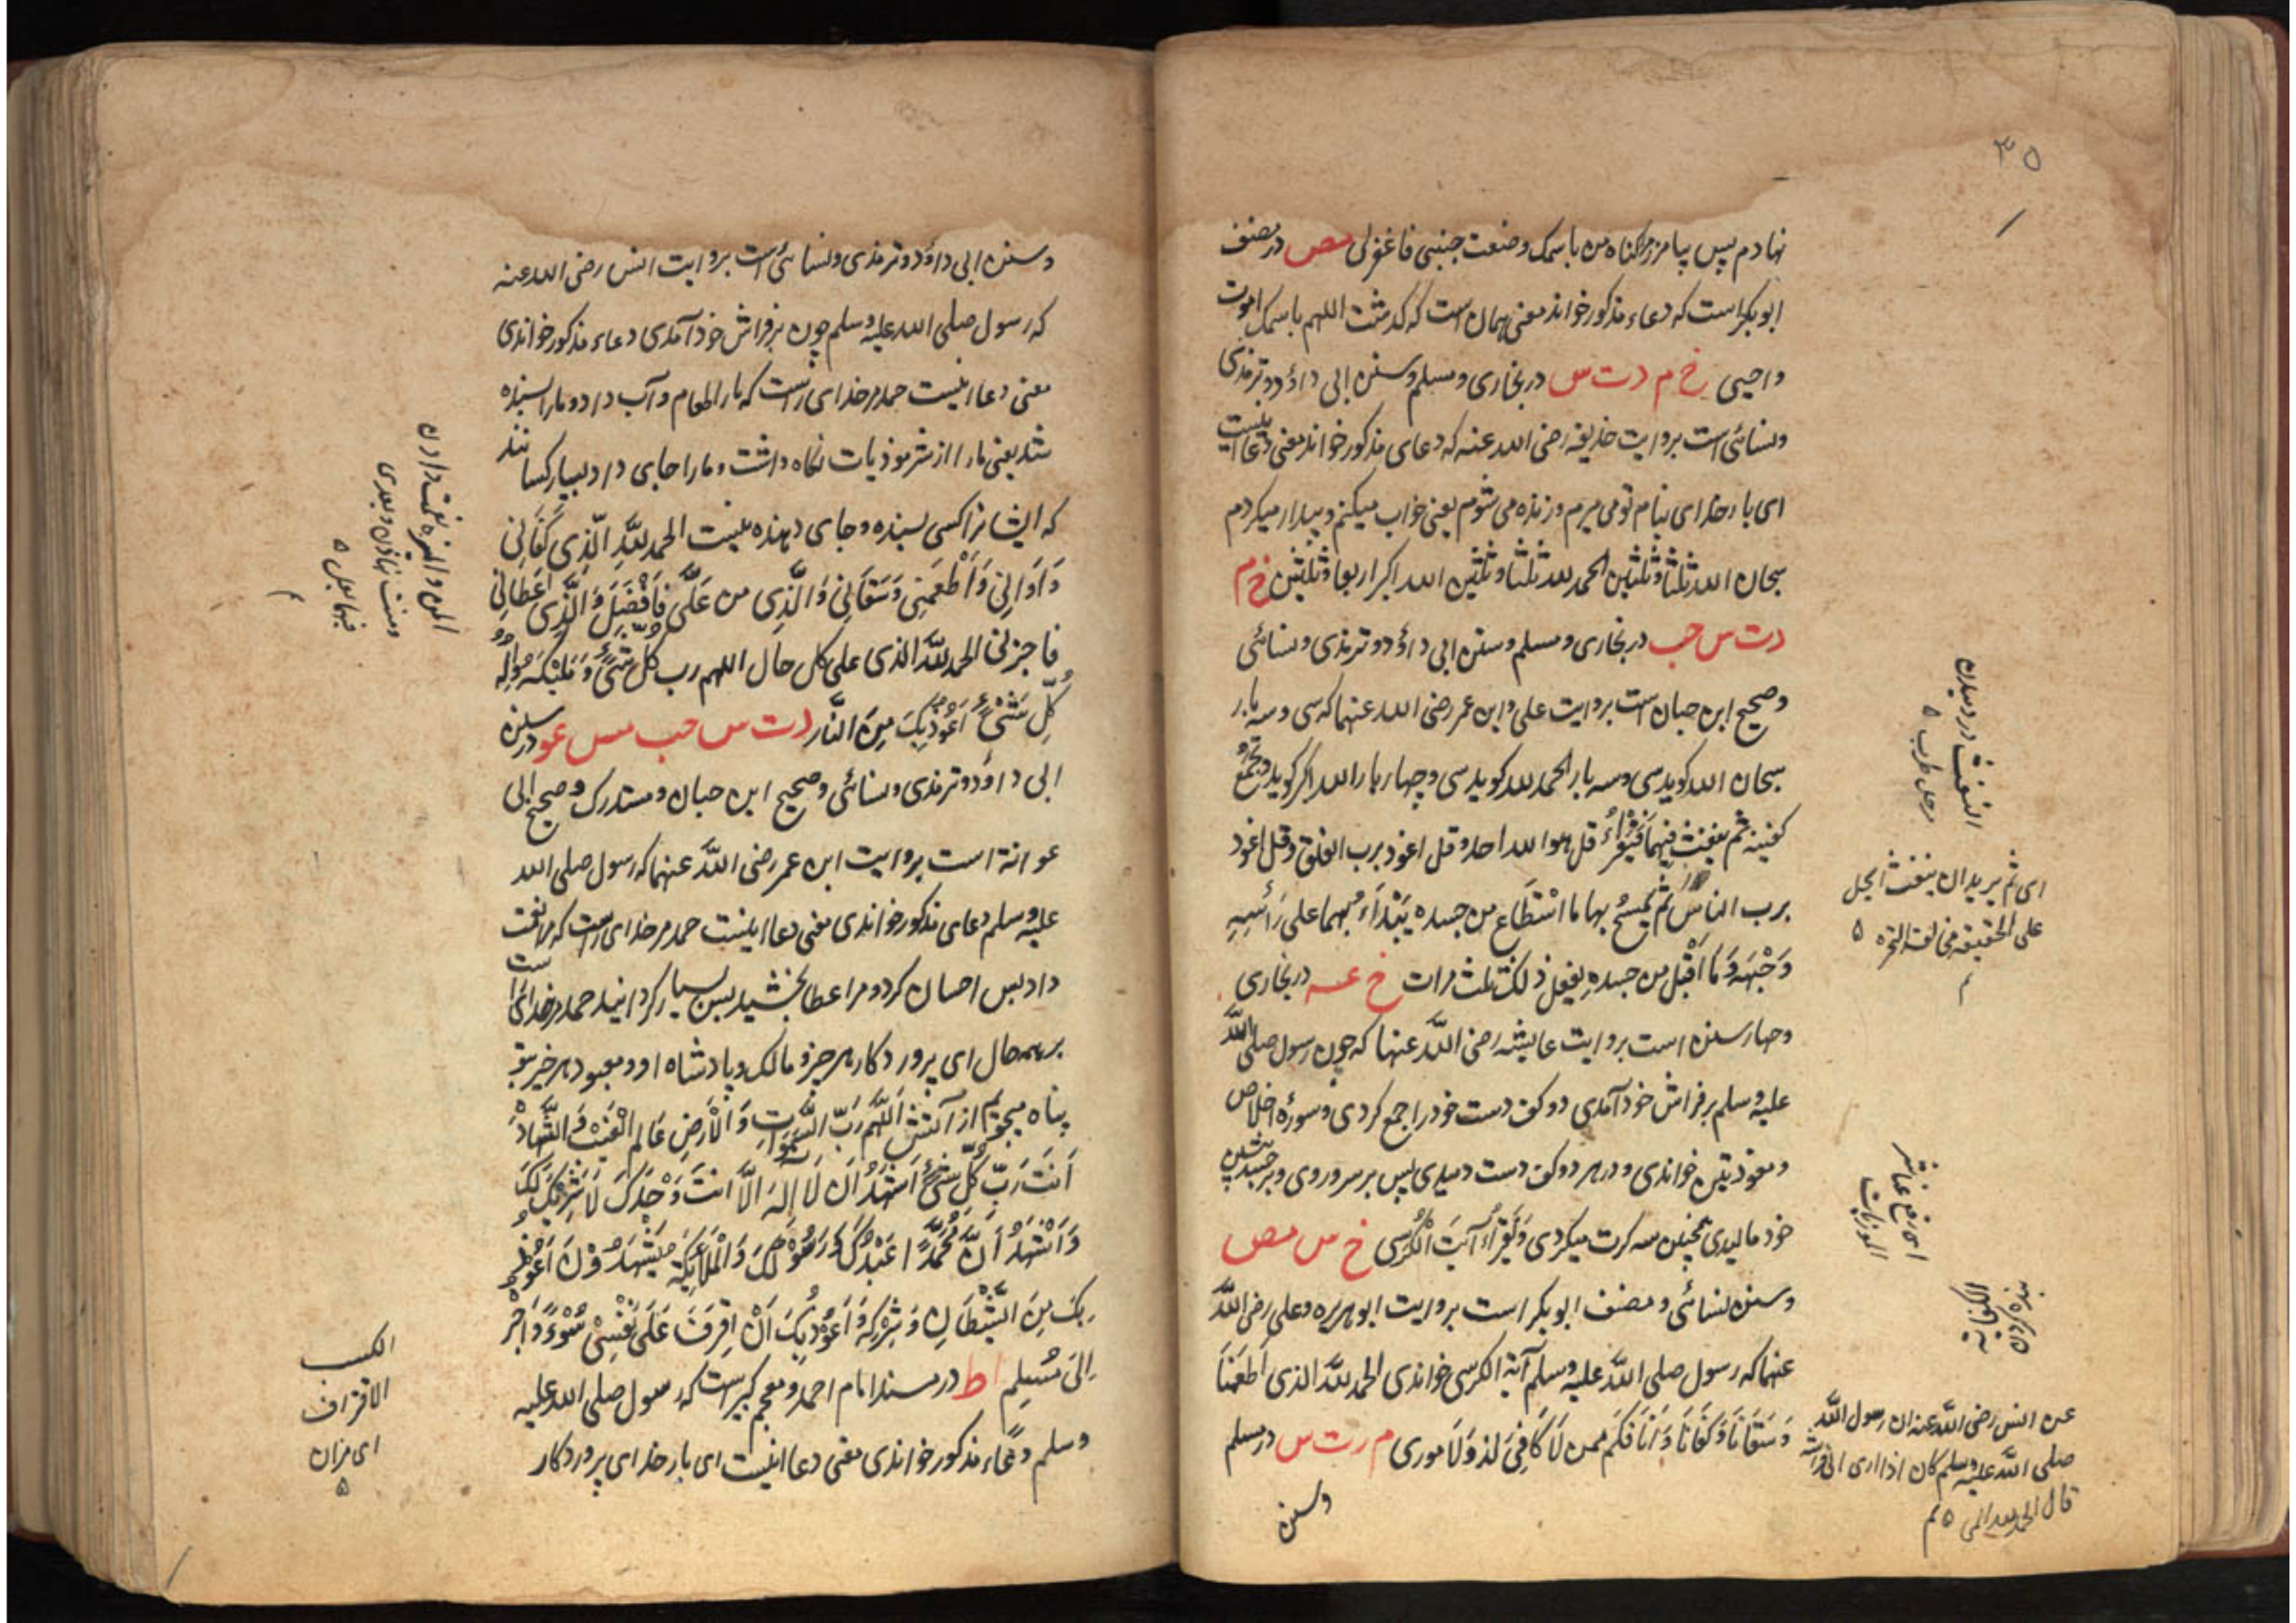 ۳۵
نهادم پس بیامرز مر کناه من باسمک وضعت جنبی فاغفرلی مص در مصنف
ابو بکر است که دعاء مذکور خواند معنی همان است که کذشت اللهم باسمک اموت
واحیی خ م د ت س در بخاری و مسلم و سنن ابی داؤد و ترمذی
ونسائی است بروایت حذیفه رضی الله عنه که دعای مذکور خواند معنی دعا اینست
ای بار خدای بنام تو می میرم و زنده می شوم یعنی خواب میکنم و بیدار میکردم
سبحان الله ثلثا وثلثین الحمد لله ثلثا وثلثین الله اکبر اربعا وثلثین خ م
د ت س حب در بخاری و مسلم و سنن ابی داؤد و ترمذی و نسائی
و صحیح ابن حبان است بروایت علی و ابن عمر رضی الله عنهما که سی و سه بار
سبحان الله کوید سی و سه بار الحمد لله کوید سی و چهار بار الله اکبر کوید ویجمع
کفیه ثم ینفث فیهما فیقرأ قل هو الله احد و قل اعوذ برب الفلق و قل اعوذ
برب الناس ثم یمسح بهما ما استطاع من جسده یبتداء بهما علی رأسه
و وجهه وما اقبل من جسده یفعل ذلک ثلث مرات خ عه در بخاری
و چهار سنن است بروایت عایشه رضی الله عنها که چون رسول صلی الله
علیه وسلم بر فراش خود آمدی دو کف دست خود را جمع کردی و سورهٔ اخلاص
و معوذتین خواندی و در هر دو کف دست دمیدی پس بر سر و روی و بر جسد پیشین
خود مالیدی همچنین سه کرت میکردی ویقرأ آیت الکرسی خ س مص
و سنن نسائی و مصنف ابو بکر است بروایت ابو هریره و علی رضی الله
عنهما که رسول صلی الله علیه وسلم آیة الکرسی خواندی الحمد لله الذی اطعمنا
وسقانا وکفانا وآوانا فکم ممن لا کافی له ولا مووی م د ت س در مسلم
وسنن
النفث در دمیدن
من حل ضرب ۵
ای ثم یرید ان ینفث
علی الحقیقه
عن انس رضی الله عنه ان رسول الله
صلی الله علیه وسلم کان اذا اوی الی فراشه
قال الحمد لله الخ ۵
وسنن ابی داؤد و ترمذی و نسائی است بروایت انس رضی الله عنه
که رسول صلی الله علیه وسلم چون بر فراش خود آمدی دعاء مذکور خواندی
معنی دعا اینست حمد مر خدای راست که ما را طعام و آب داد و ما را بسنده
شد یعنی ما را از شر موذیات نکاه داشت و ما را جای داد بسیار کسانند
که ایشانرا کسی بسنده و جای دهنده نیست الحمد لله الذی کفانی
وآوانی واطعمنی وسقانی والذی من علی فافضل والذی اعطانی
فاجزل الحمد لله علی کل حال اللهم رب کل شیء وملیکه واله
کل شیء اعوذ بک من النار د ت س حب مس عو در سنن
ابی داؤد و ترمذی و نسائی و صحیح ابن حبان و مستدرک و صحیح ابی
عوانة است بروایت ابن عمر رضی الله عنهما که رسول صلی الله
علیه وسلم دعای مذکور خواندی معنی دعا اینست حمد مر خدای راست که مرا نعمت
داد پس احسان کرد و مرا عطا بخشید پس بسیار کردانید حمد مر خدای راست
بر همه حال ای پروردکار هر چیز و مالک و پادشاه او و معبود هر چیز بتو
پناه میجویم از آتش اللهم رب السموات والارض عالم الغیب والشهادة
انت رب کل شیء اشهد ان لا اله الا انت وحدک لا شریک لک
واشهد ان محمدا عبدک ورسولک والملائکة یشهدون اعوذ
بک من الشیطان وشرکه واعوذ بک ان اقترف علی نفسی سوءا او اجره
الی مسلم ا ط در مسند امام احمد و معجم کبیر است که رسول صلی الله علیه
وسلم دعاء مذکور خواندی معنی دعا اینست ای بار خدای پروردکار
المن والمنة نعمت دادن
ومنت نهادن
الکسب
الاقتراف
۵